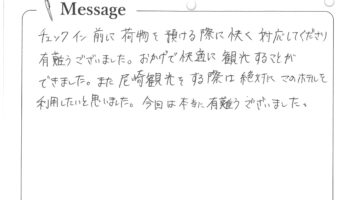 Message
チェックイン前に荷物を預ける際に快く対応してくださり
有難うございました。おかげで快適に観光することが
できました。また尼崎観光をする際は絶対にこのホテルを
利用したいと思いました。今回は本当に有難うございました。